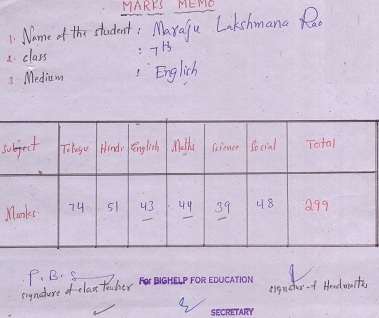 MARKS MEMO
1. Name of the student : Maraju Lakshmana Rao
2. class : 7th
3. Medium : English
Subject Telugu Hindi English Maths Science Social Total
Marks 74 51 43 44 39 48 299
P. B. S
signature of class teacher For BIGHELP FOR EDUCATION signature of Headmaster
SECRETARY